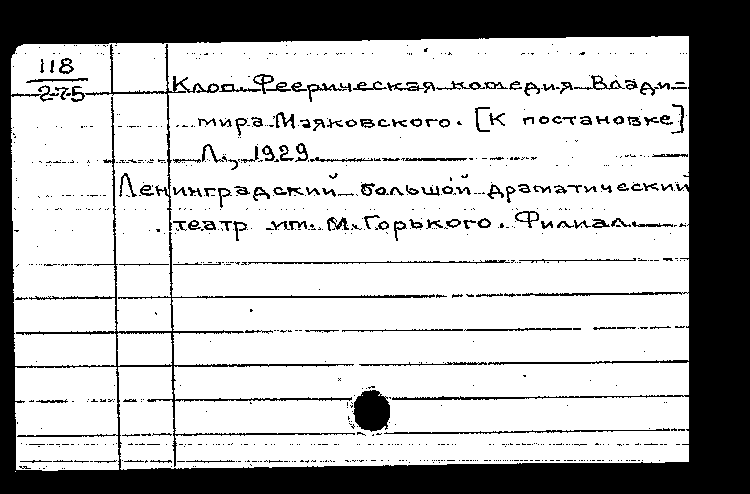 118
275
Клоп. Феерическая комедия Влади=
мира Маяковского. [К постановке]
Л., 1929.
Ленинградский большой драматический
театр им. М. Горького. Филиал.